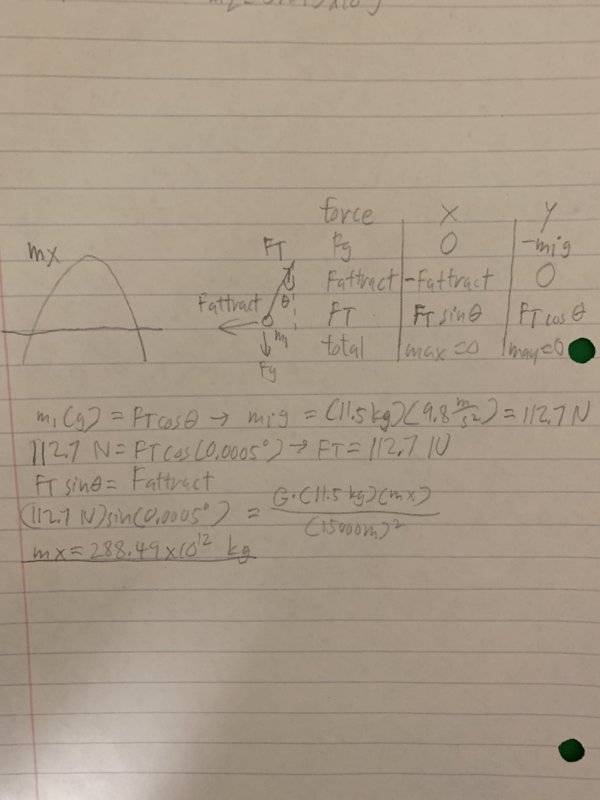 force X Y
Fg 0 -m₁g
Fattract -Fattract 0
FT FT sinθ FT cosθ
total max=0 may=0
mx
FT
θ
Fattract
m₁
Fg
m₁(g) = FTcosθ → m₁g = (11.5kg)(9.8 m/s²) = 112.7 N
112.7 N = FTcos(0.0005°) → FT = 112.7 N
FT sinθ = Fattract
(112.7 N)sin(0.0005°) = G·(11.5 kg)(mx) / (15000m)²
mx = 288.49×10¹² kg